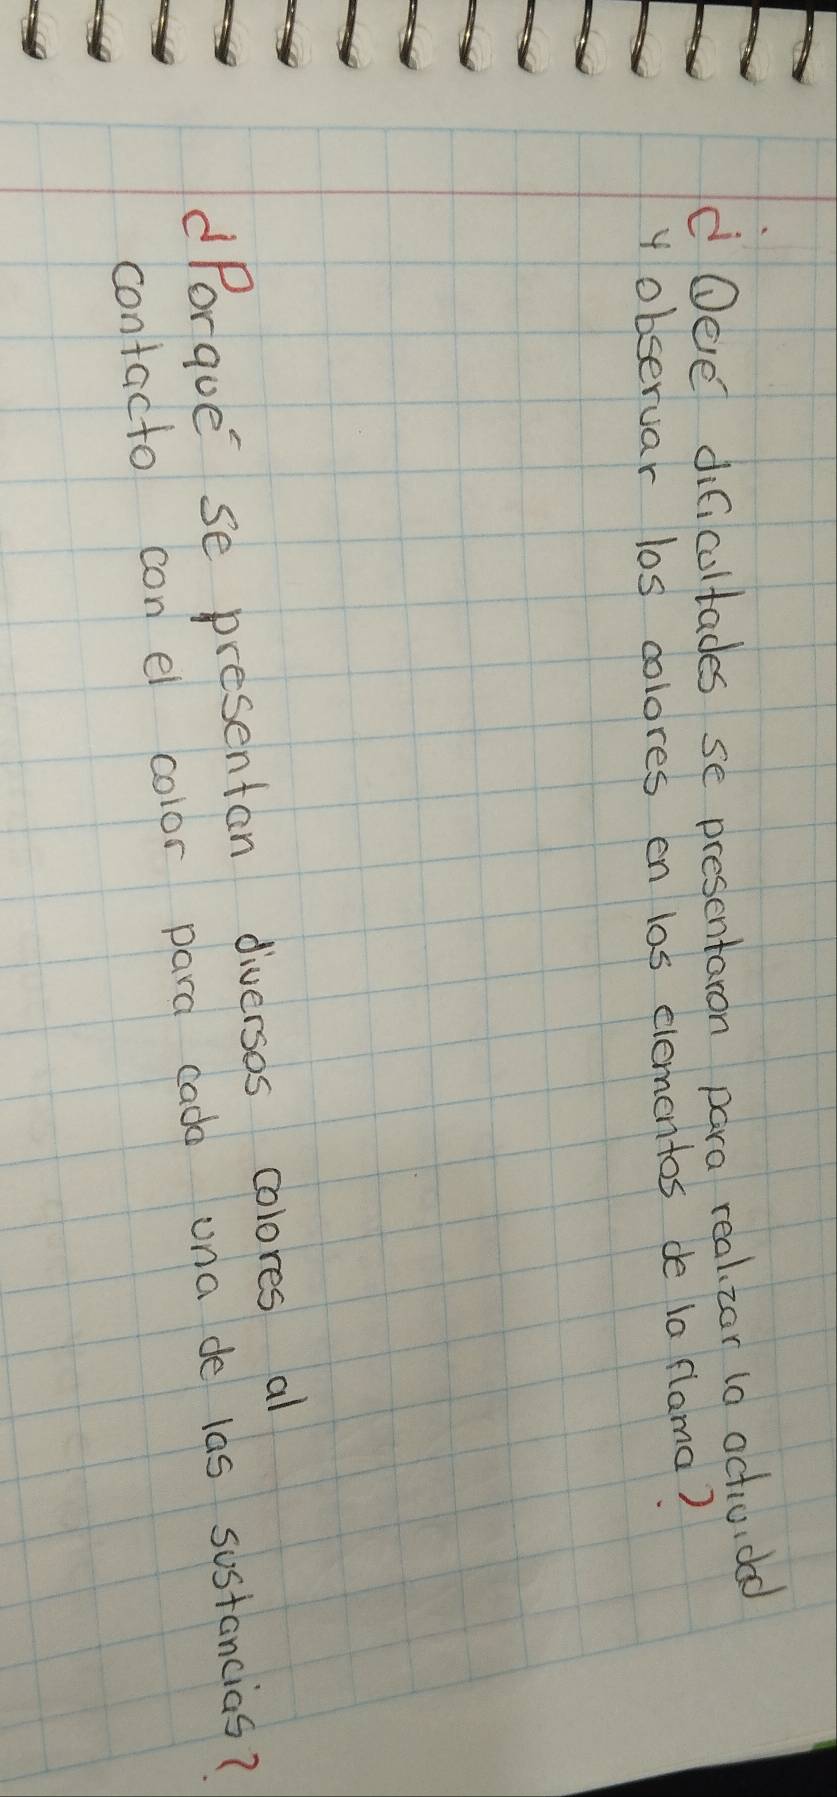 ¿Qué dificultades se presentaron para realizar la actividad
y observar los colores en los elementos de la flama?
¿Porqué se presentan diversos colores al
contacto con el color para cada una de las sustancias?